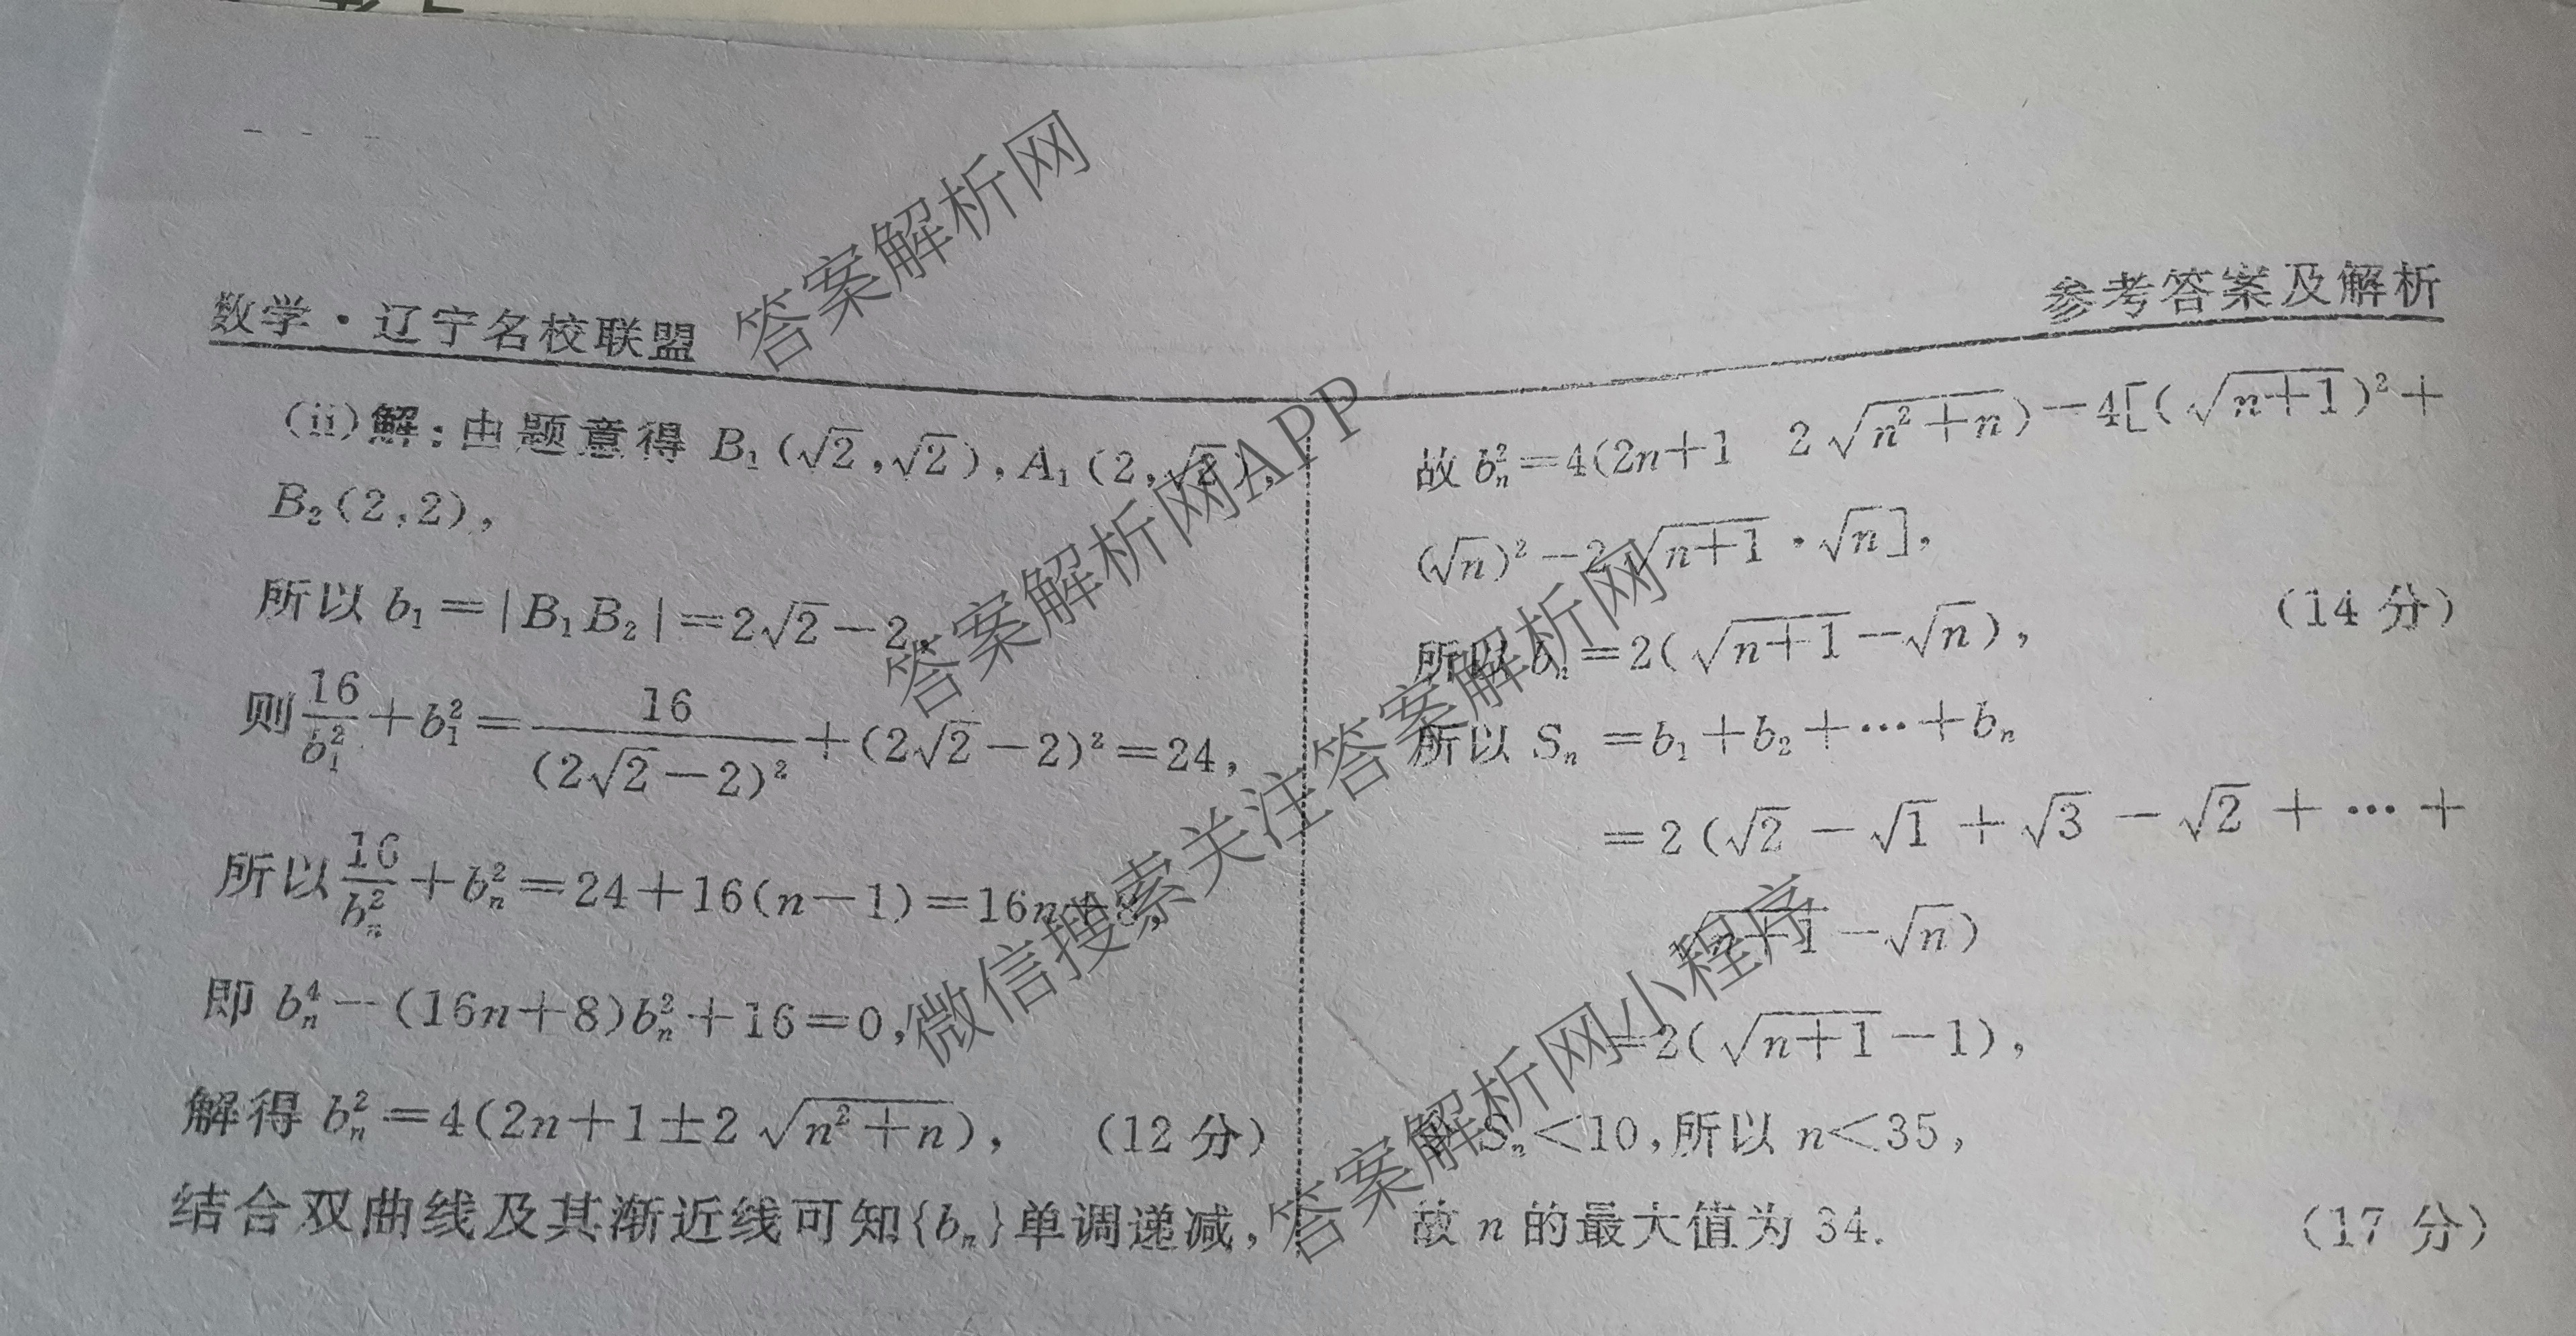 数学·辽宁名校联盟
参考答案及解析
(ii)解:由题意得 B₁(√2,√2),A₁(2,√2),
B₂(2,2),
所以 b₁=|B₁B₂|=2√2-2,
则 16/b₁²+b₁²=16/(2√2-2)²+(2√2-2)²=24,
所以 16/bₙ²+bₙ²=24+16(n-1)=16n+8,
即 bₙ⁴-(16n+8)bₙ²+16=0,
解得 bₙ²=4(2n+1±2√(n²+n)), (12分)
结合双曲线及其渐近线可知{bₙ}单调递减,
故 bₙ²=4(2n+1 2√(n²+n))-4[(√(n+1))²+
(√n)²-2√(n+1)·√n],
(14分)
所以 bₙ=2(√(n+1)-√n),
所以 Sₙ=b₁+b₂+…+bₙ
=2(√2-√1+√3-√2+…+
√(n+1)-√n)
=2(√(n+1)-1),
Sₙ<10,所以 n<35,
故 n 的最大值为 34. (17分)
答案解析网
答案解析网APP
微信搜索关注答案解析网
答案解析网小程序